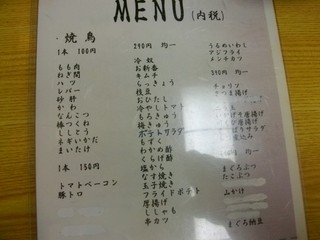 MENU (内税)
・焼鳥
1本 100円
もも肉
ねぎ間
ハツ
レバー
砂肝
かわ
なんこつ
棒つくね
ししとう
ネギいかだ
まいたけ
1本 150円
トマトベーコン
豚トロ
290円 均一
冷奴
お新香
キムチ
らっきょう
枝豆
おひたし
冷やしトマト
もろきゅう
梅きゅう
ポテトサラダ
もずく
わかめ酢
くらげ酢
塩から
なす焼き
玉子焼き
フライドポテト
厚揚げ
ししゃも
串カツ
うるめいわし
アジフライ
メンチカツ
390円 均一
チョリソ
さつま揚げ
まぐろぶつ
たこぶつ
山かけ
まぐろ納豆